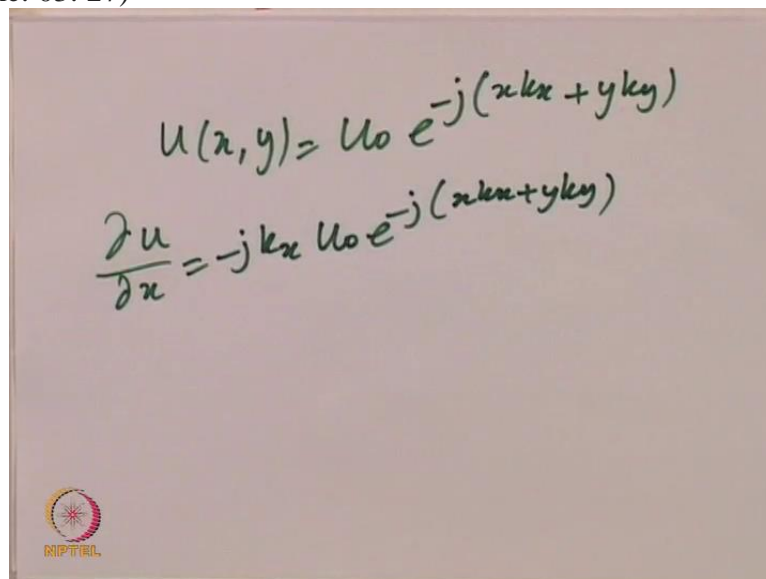 u(x,y) = u0 e^-j(xkx + yky)
∂u/∂x = -jkx u0 e^-j(xkx+yky)
NPTEL